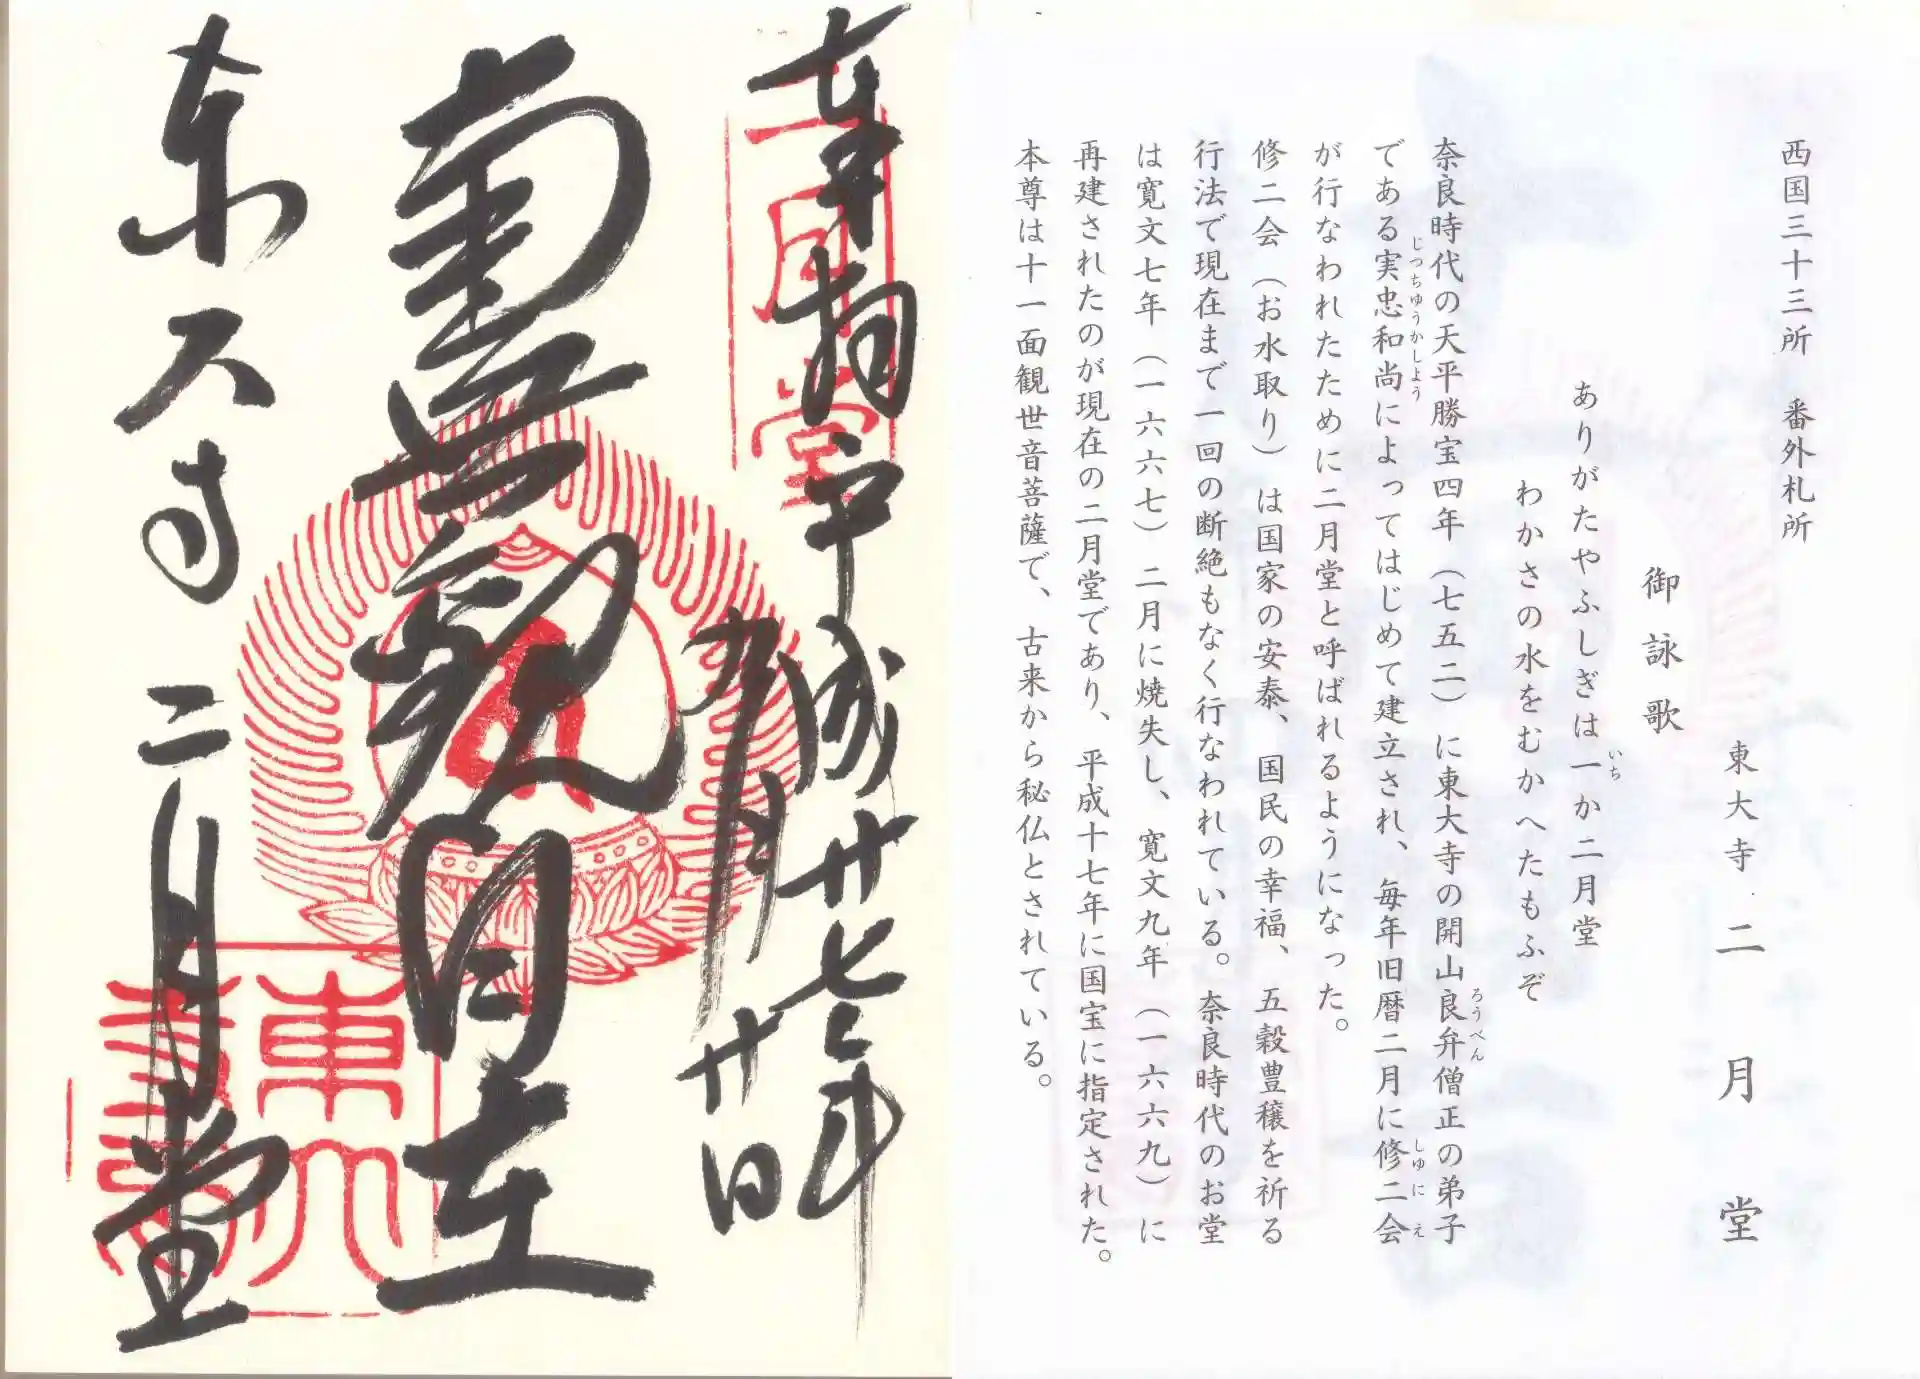 西国三十三所 番外札所
東大寺 二月堂
御詠歌
ありがたやふしぎは一か二月堂
いち
わかさの水をむかへたもふぞ
奈良時代の天平勝宝四年（七五二）に東大寺の開山良弁僧正の弟子
ろうべん
である実忠和尚によってはじめて建立され、毎年旧暦二月に修二会
じつちゆうかしよう
しゆにえ
が行なわれたために二月堂と呼ばれるようになった。
修二会（お水取り）は国家の安泰、国民の幸福、五穀豊穣を祈る
行法で現在まで一回の断絶もなく行なわれている。奈良時代のお堂
は寛文七年（一六六七）二月に焼失し、寛文九年（一六六九）に
再建されたのが現在の二月堂であり、平成十七年に国宝に指定された。
本尊は十一面観世音菩薩で、古来から秘仏とされている。
奉拝 平成廿七年
九月廿日
二月堂
南無観自在
東大寺 二月堂
東大